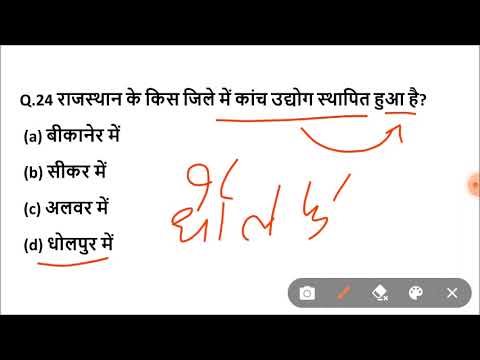 Q.24 राजस्थान के किस जिले में कांच उद्योग स्थापित हुआ है?
(a) बीकानेर में
(b) सीकर में
(c) अलवर में
(d) धोलपुर में